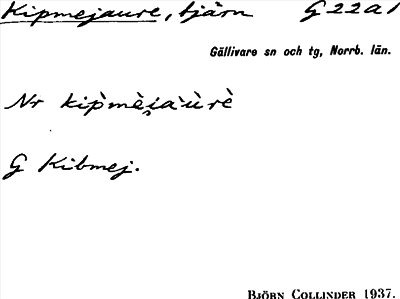 Kipmejaure, tjärn G22a1
Gällivare sn och tg, Norrb. län.
Nr kip̀mèi̯a̯ùrè
G Kibmej.
BJÖRN COLLINDER 1937.